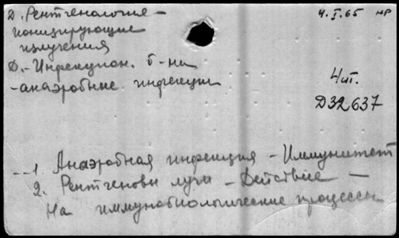 Д. Рентгенология –
ионизирующие
излучения
Д.- Инфекцион. б-ни
-анаэробные инфекции
4.I.65 нр
Чит.
Д32637
1. Анаэробная инфекция – Иммунитет
2. Рентгеновы лучи – Действие –
На иммунобиологические процессы